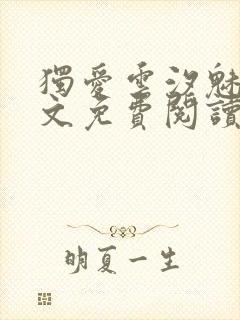 獨愛雲汐魅
文免費閱讀
明夏一生